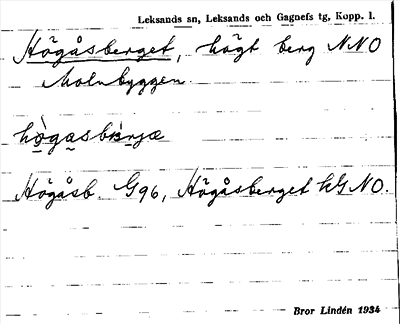 Leksands sn, Leksands och Gagnefs tg, Kopp. l.
Högåsberget, högt berg NNO
Molnbyggen.
Högåsb. G96, Högåsberget hG NO.
Bror Lindén 1934